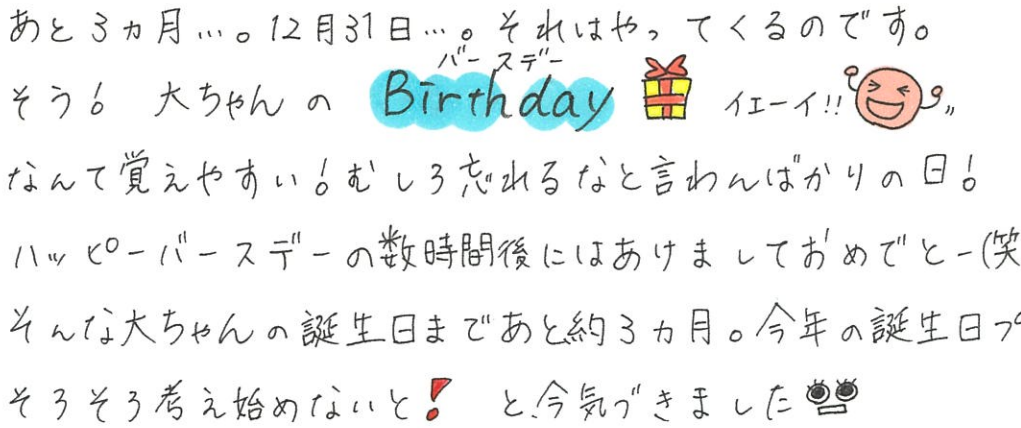 あと3ヵ月…。12月31日…。それはやってくるのです。
バースデー
そう! 大ちゃんの Birthday イエーイ!!
なんて覚えやすい!むしろ忘れるなと言わんばかりの日!
ハッピーバースデーの数時間後にはあけましておめでとー(笑
そんな大ちゃんの誕生日まであと約3ヵ月。今年の誕生日プ
そろそろ考え始めないと! と、今気づきました